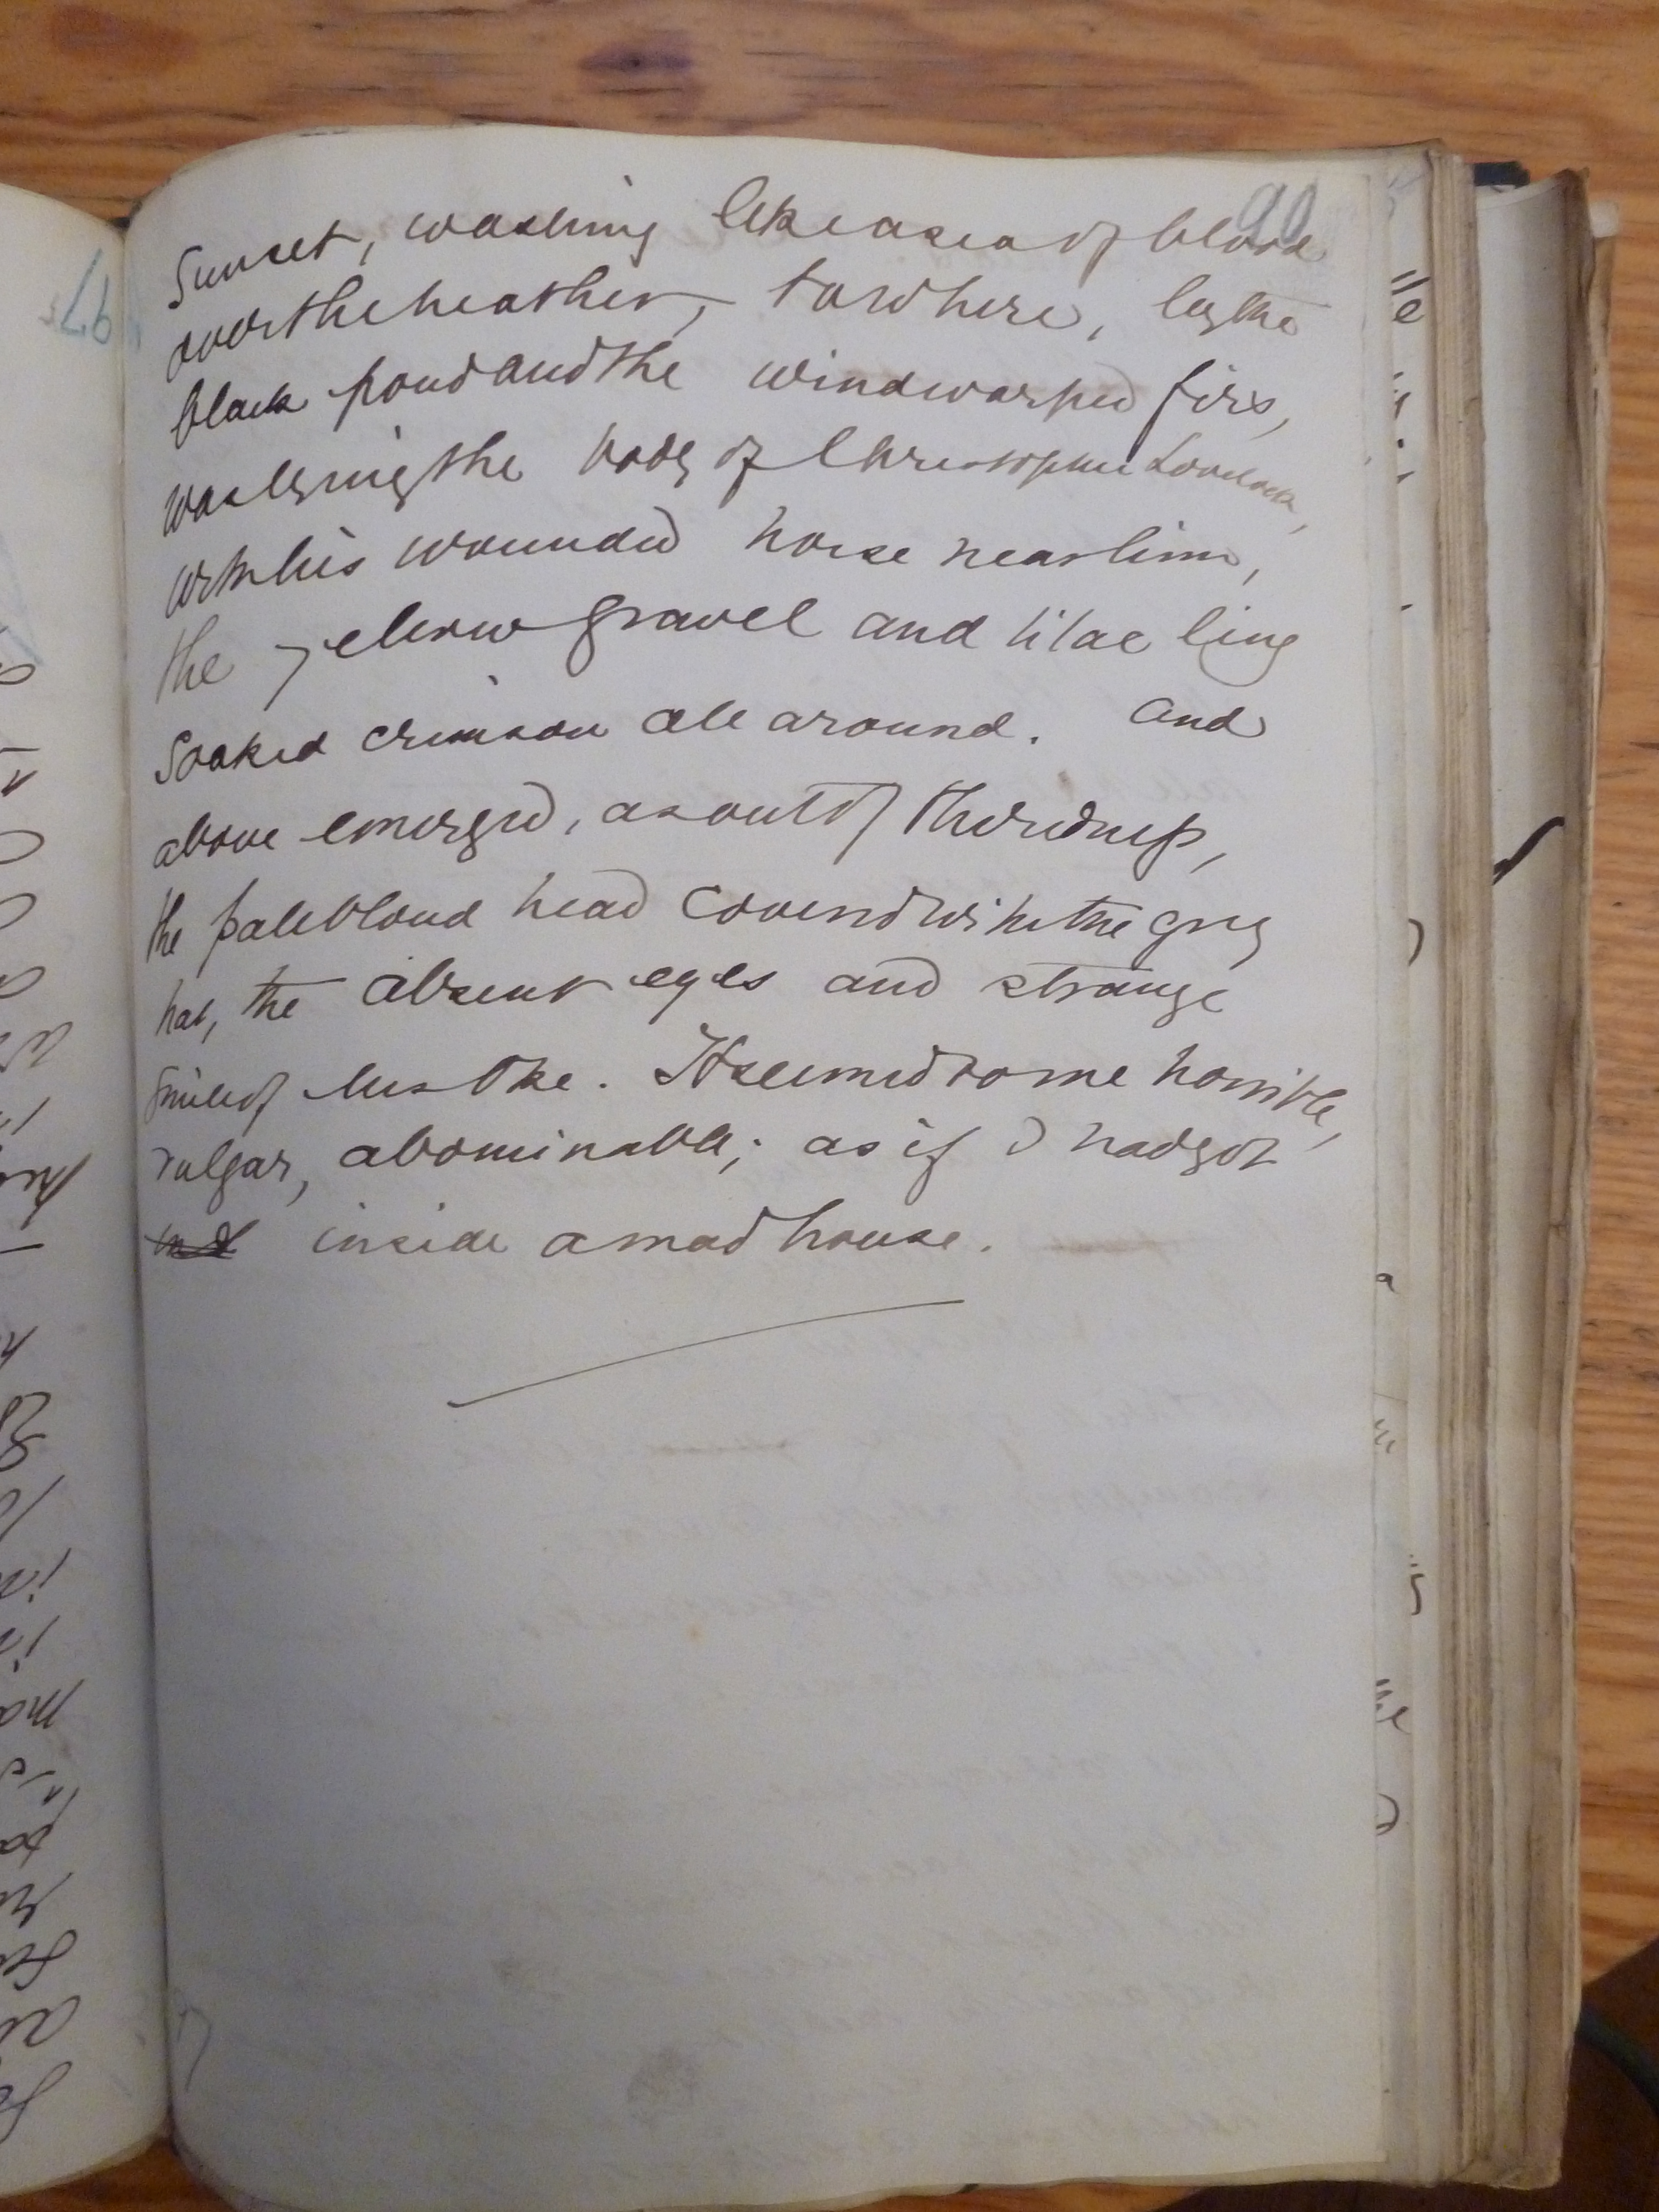 90
Sunset, washing like a sea of blood
over the heather, to where, by the
black pond and the windwarped firs,
was lying the body of Christopher Lovelock,
with his wounded horse near him,
the yellow gravel and lilac ling
soaked crimson all around. And
above emerged, as out of the redness,
the pale blond head covered with the grey
hat, the absent eyes and strange
smile of Mrs Oke. It seemed to me horrible,
vulgar, abominable; as if I had got
inside a madhouse.
97